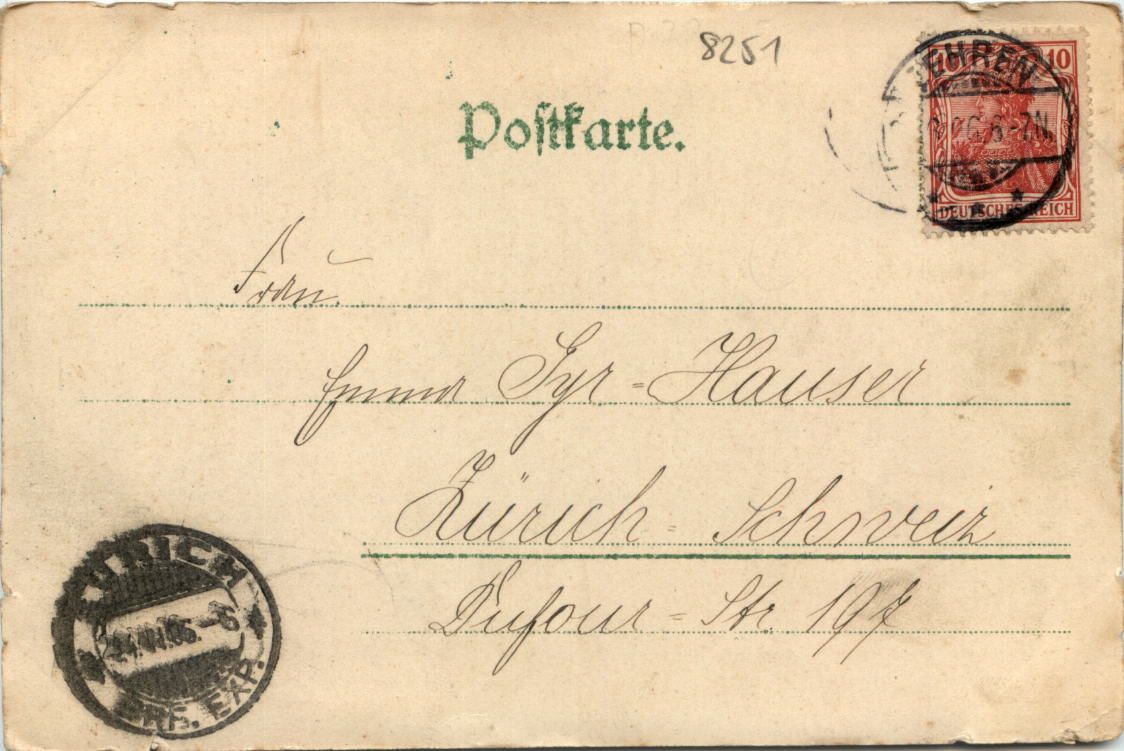 8251
Postkarte.
10 10
DEUTSCHES REICH
6-7N.
Frau
Emma Gyr-Hauser
Zürich - Schweiz
Dufour-Str. 197
ZÜRICH
BRF. EXP.